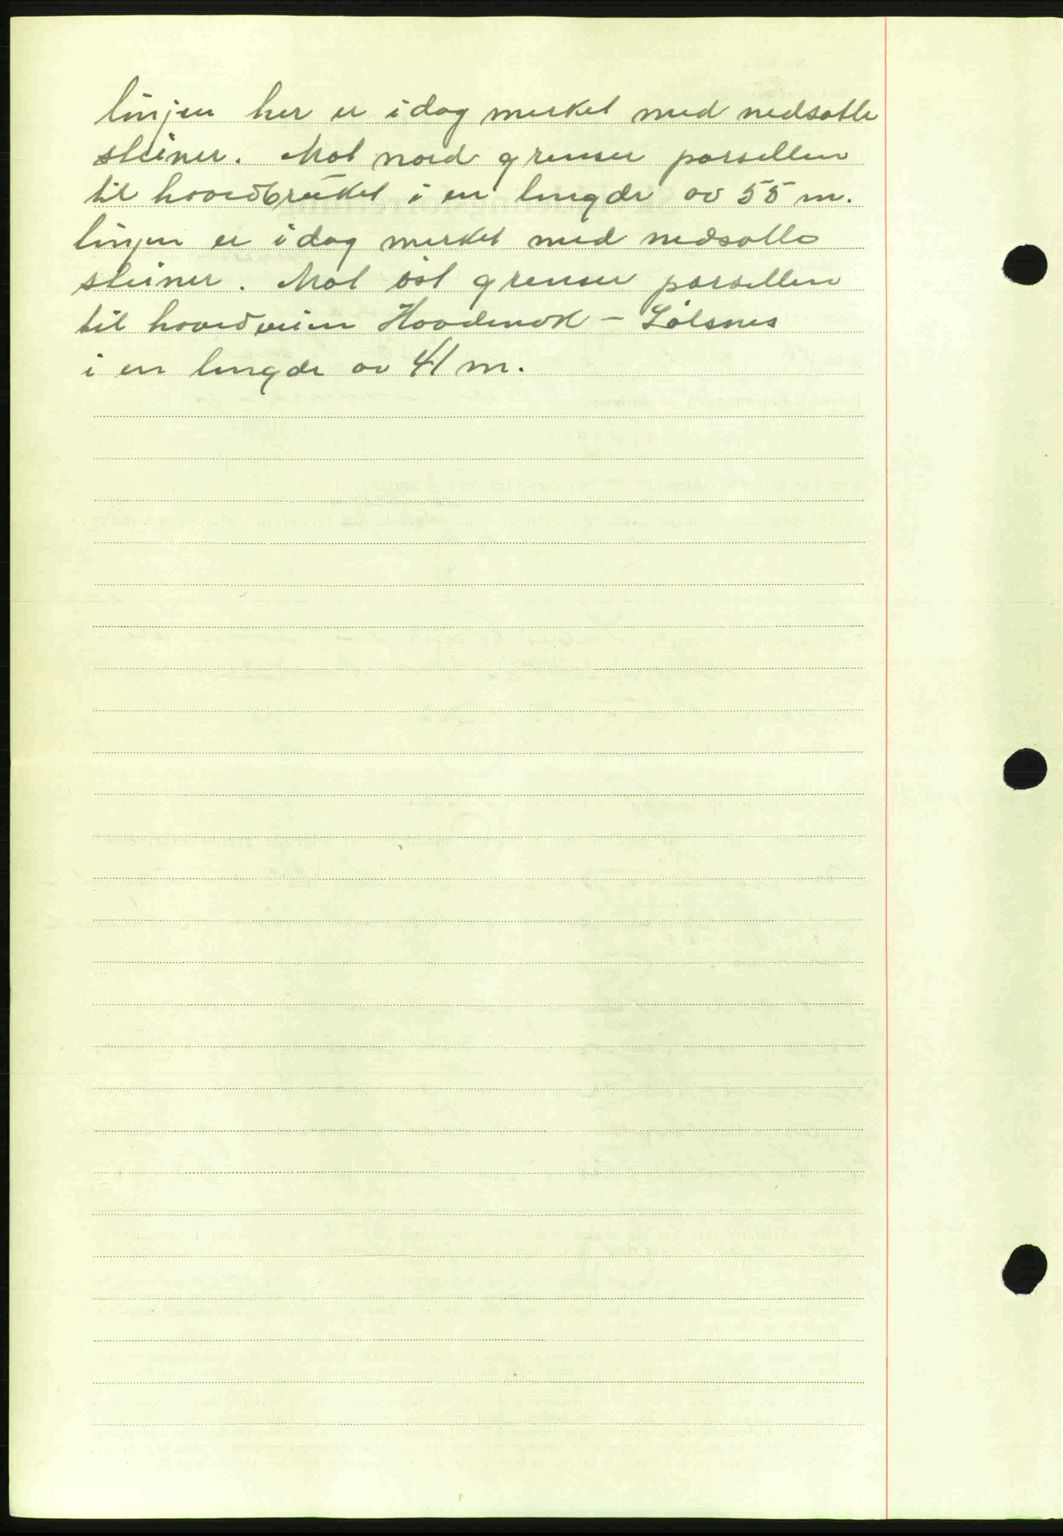 linjen her er idag merket med nedsatte
steiner. Mot nord grenser parsellen
til hovedbruket i en lengde av 55 m.
linjen er idag merket med nedsatte
steiner. Mot øst grenser parsellen
til hovedveien - Sølsnes
i en lengde av 41 m.